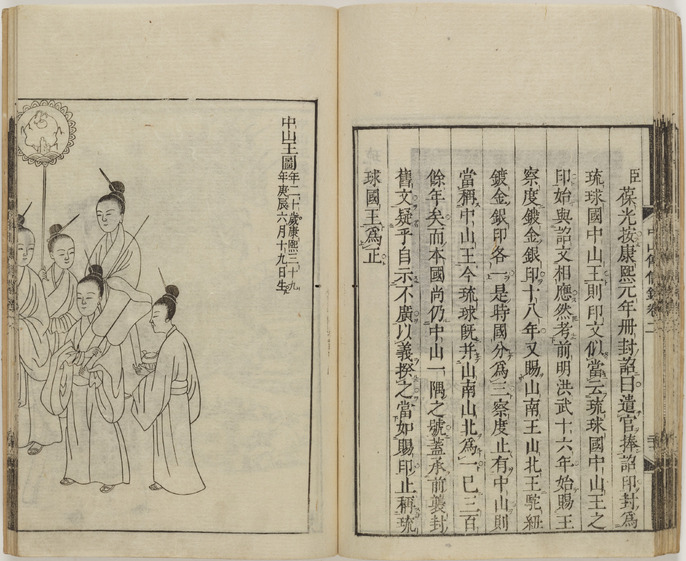 臣葆光按康熙元年冊封詔曰遣官捧詔印封爲
琉球國中山王則印文似當云琉球國中山王之
印始與詔文相應然考前明洪武十六年始賜王
察度鍍金銀印十八年又賜山南王山北王駝紐
鍍金銀印各一是時國分爲三察度止有中山則
當稱中山王今琉球旣并山南山北爲一已三百
餘年矣而本國尚仍中山一隅之號蓋承前襲封
舊文疑乎自示不廣以義揆之當如賜印止稱琉
球國王爲正
中山王圖
年二十歲康熙三十九
年庚辰六月十九日生